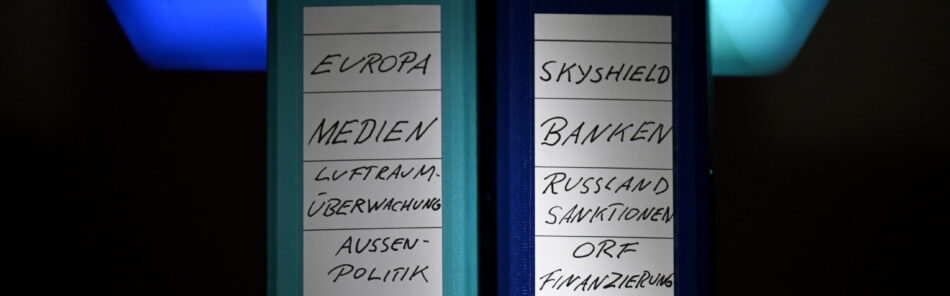 EUROPA
MEDIEN
LUFTRAUM-
ÜBERWACHUNG
AUSSEN-
POLITIK
SKYSHIELD
BANKEN
RUSSLAND
SANKTIONEN
ORF
FINANZIERUNG